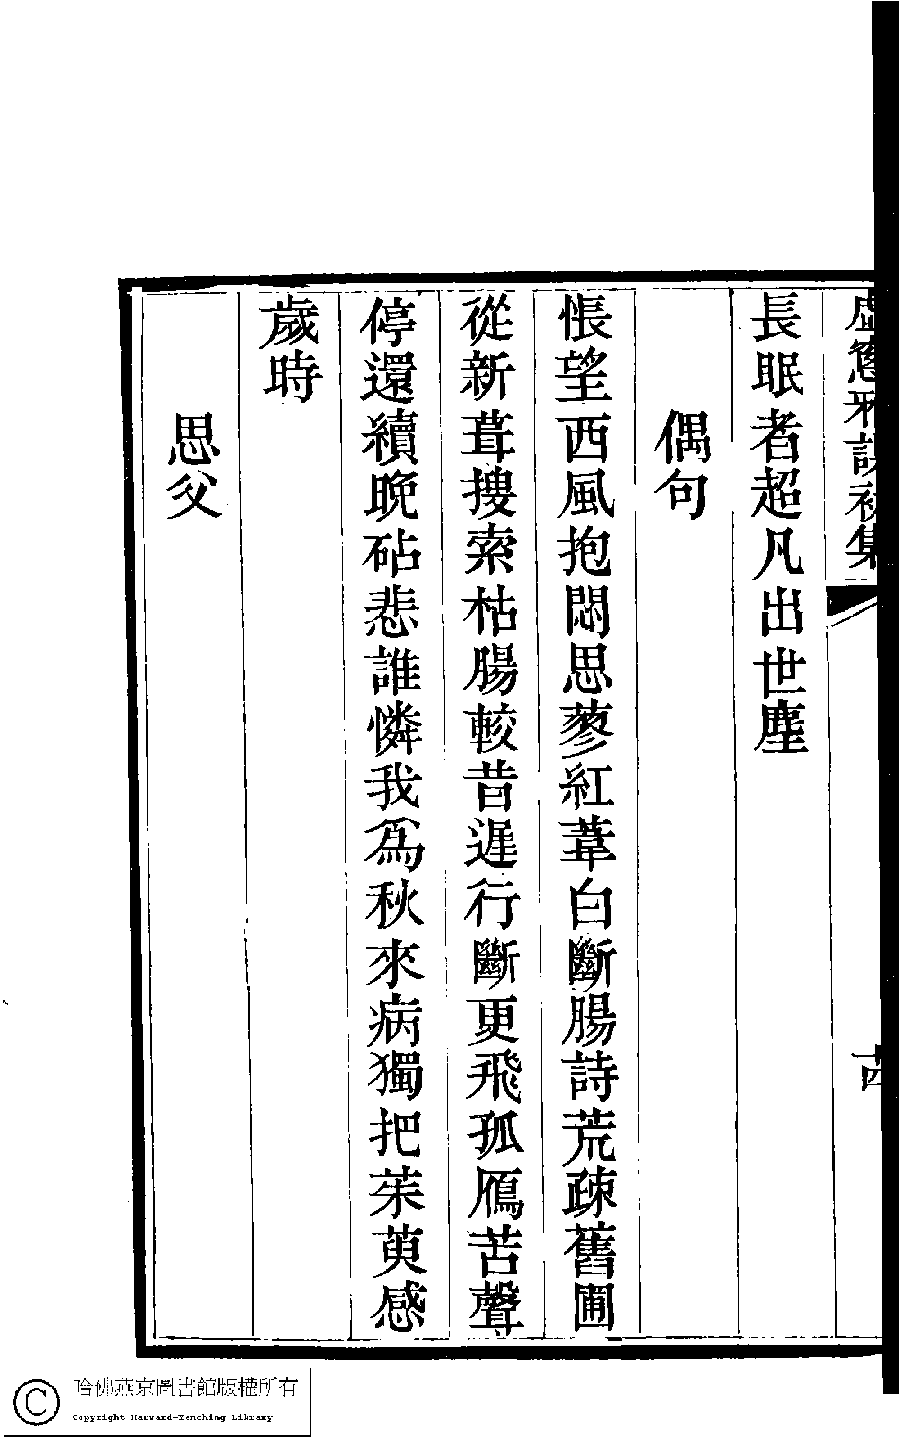 虛窻雅課初集
長眠者超凡出世塵
偶句
悵望西風抱悶思蓼紅葦白斷腸詩荒疎舊圃
從新葺搜索枯腸較昔遲行斷更飛孤鴈苦聲
停還續晚砧悲誰憐我爲秋來病獨把茱萸感
歲時
思父
哈佛燕京圖書館版權所有
Copyright Harvard-Yenching Library